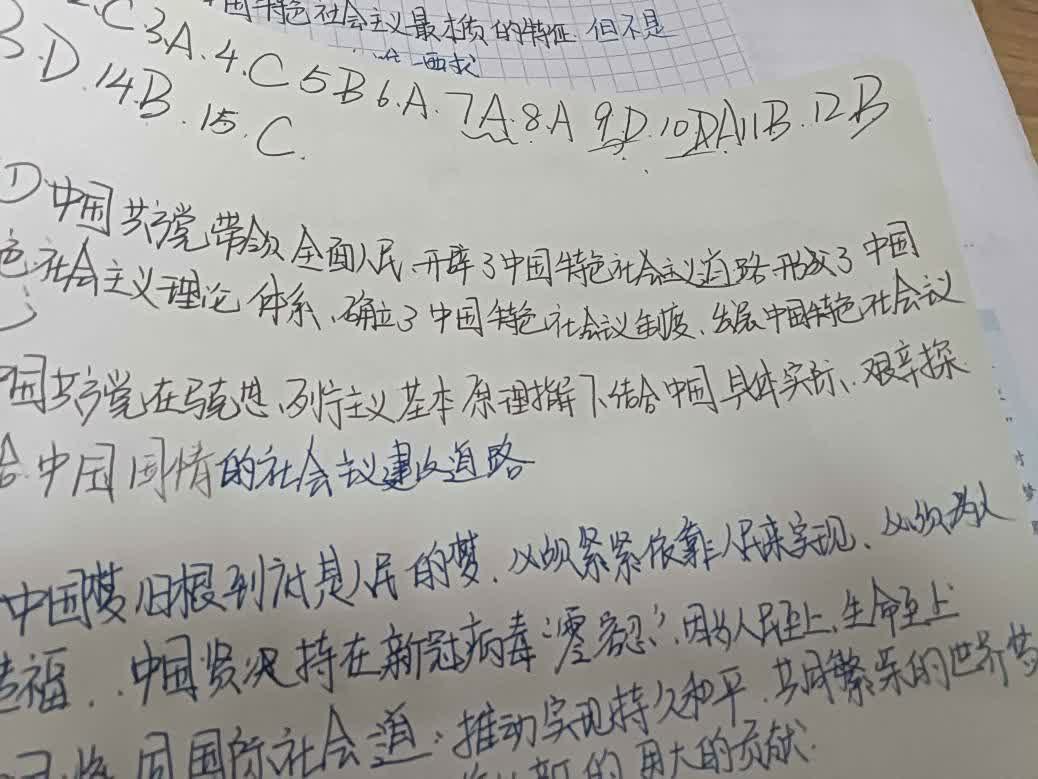 国特色社会主义最本质的特征.但不是
一要求
2.C3.A.4.C 5B 6.A.7A.8.A 9.D.10DA11B.12B
3.D.14.B.15.C.
①.中国共产党带领全面人民.开辟了中国特色社会主义道路.形成了中国
色社会主义理论体系、确立了中国特色社会主义制度、发展中国特色社会主义
中国共产党在马克思、列宁主义基本原理指导下、结合中国具体实际、艰辛探
合中国国情的社会主义建设道路
中国梦归根到底是人民的梦.必须紧紧依靠人民来实现、必须为人
造福..中国坚决持在新冠病毒“零容忍”.因为人民至上.生命至上
同国际社会一道:推动实现持久和平.共同繁荣的世界梦
新的更大的贡献.